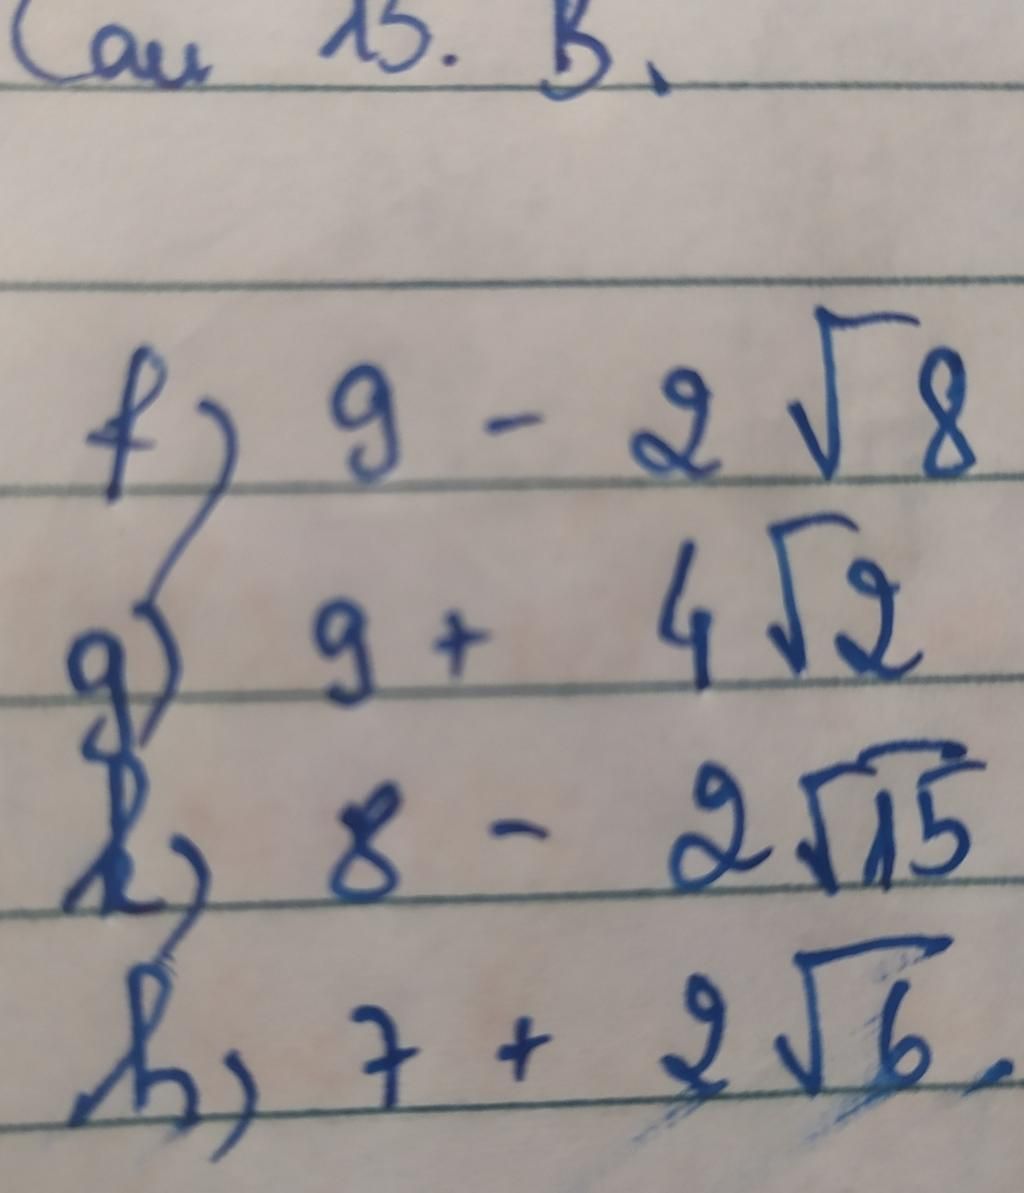 Cau 15. B.
f) 9 - 2√8
g) 9 + 4√2
k) 8 - 2√15
h) 7 + 2√6.